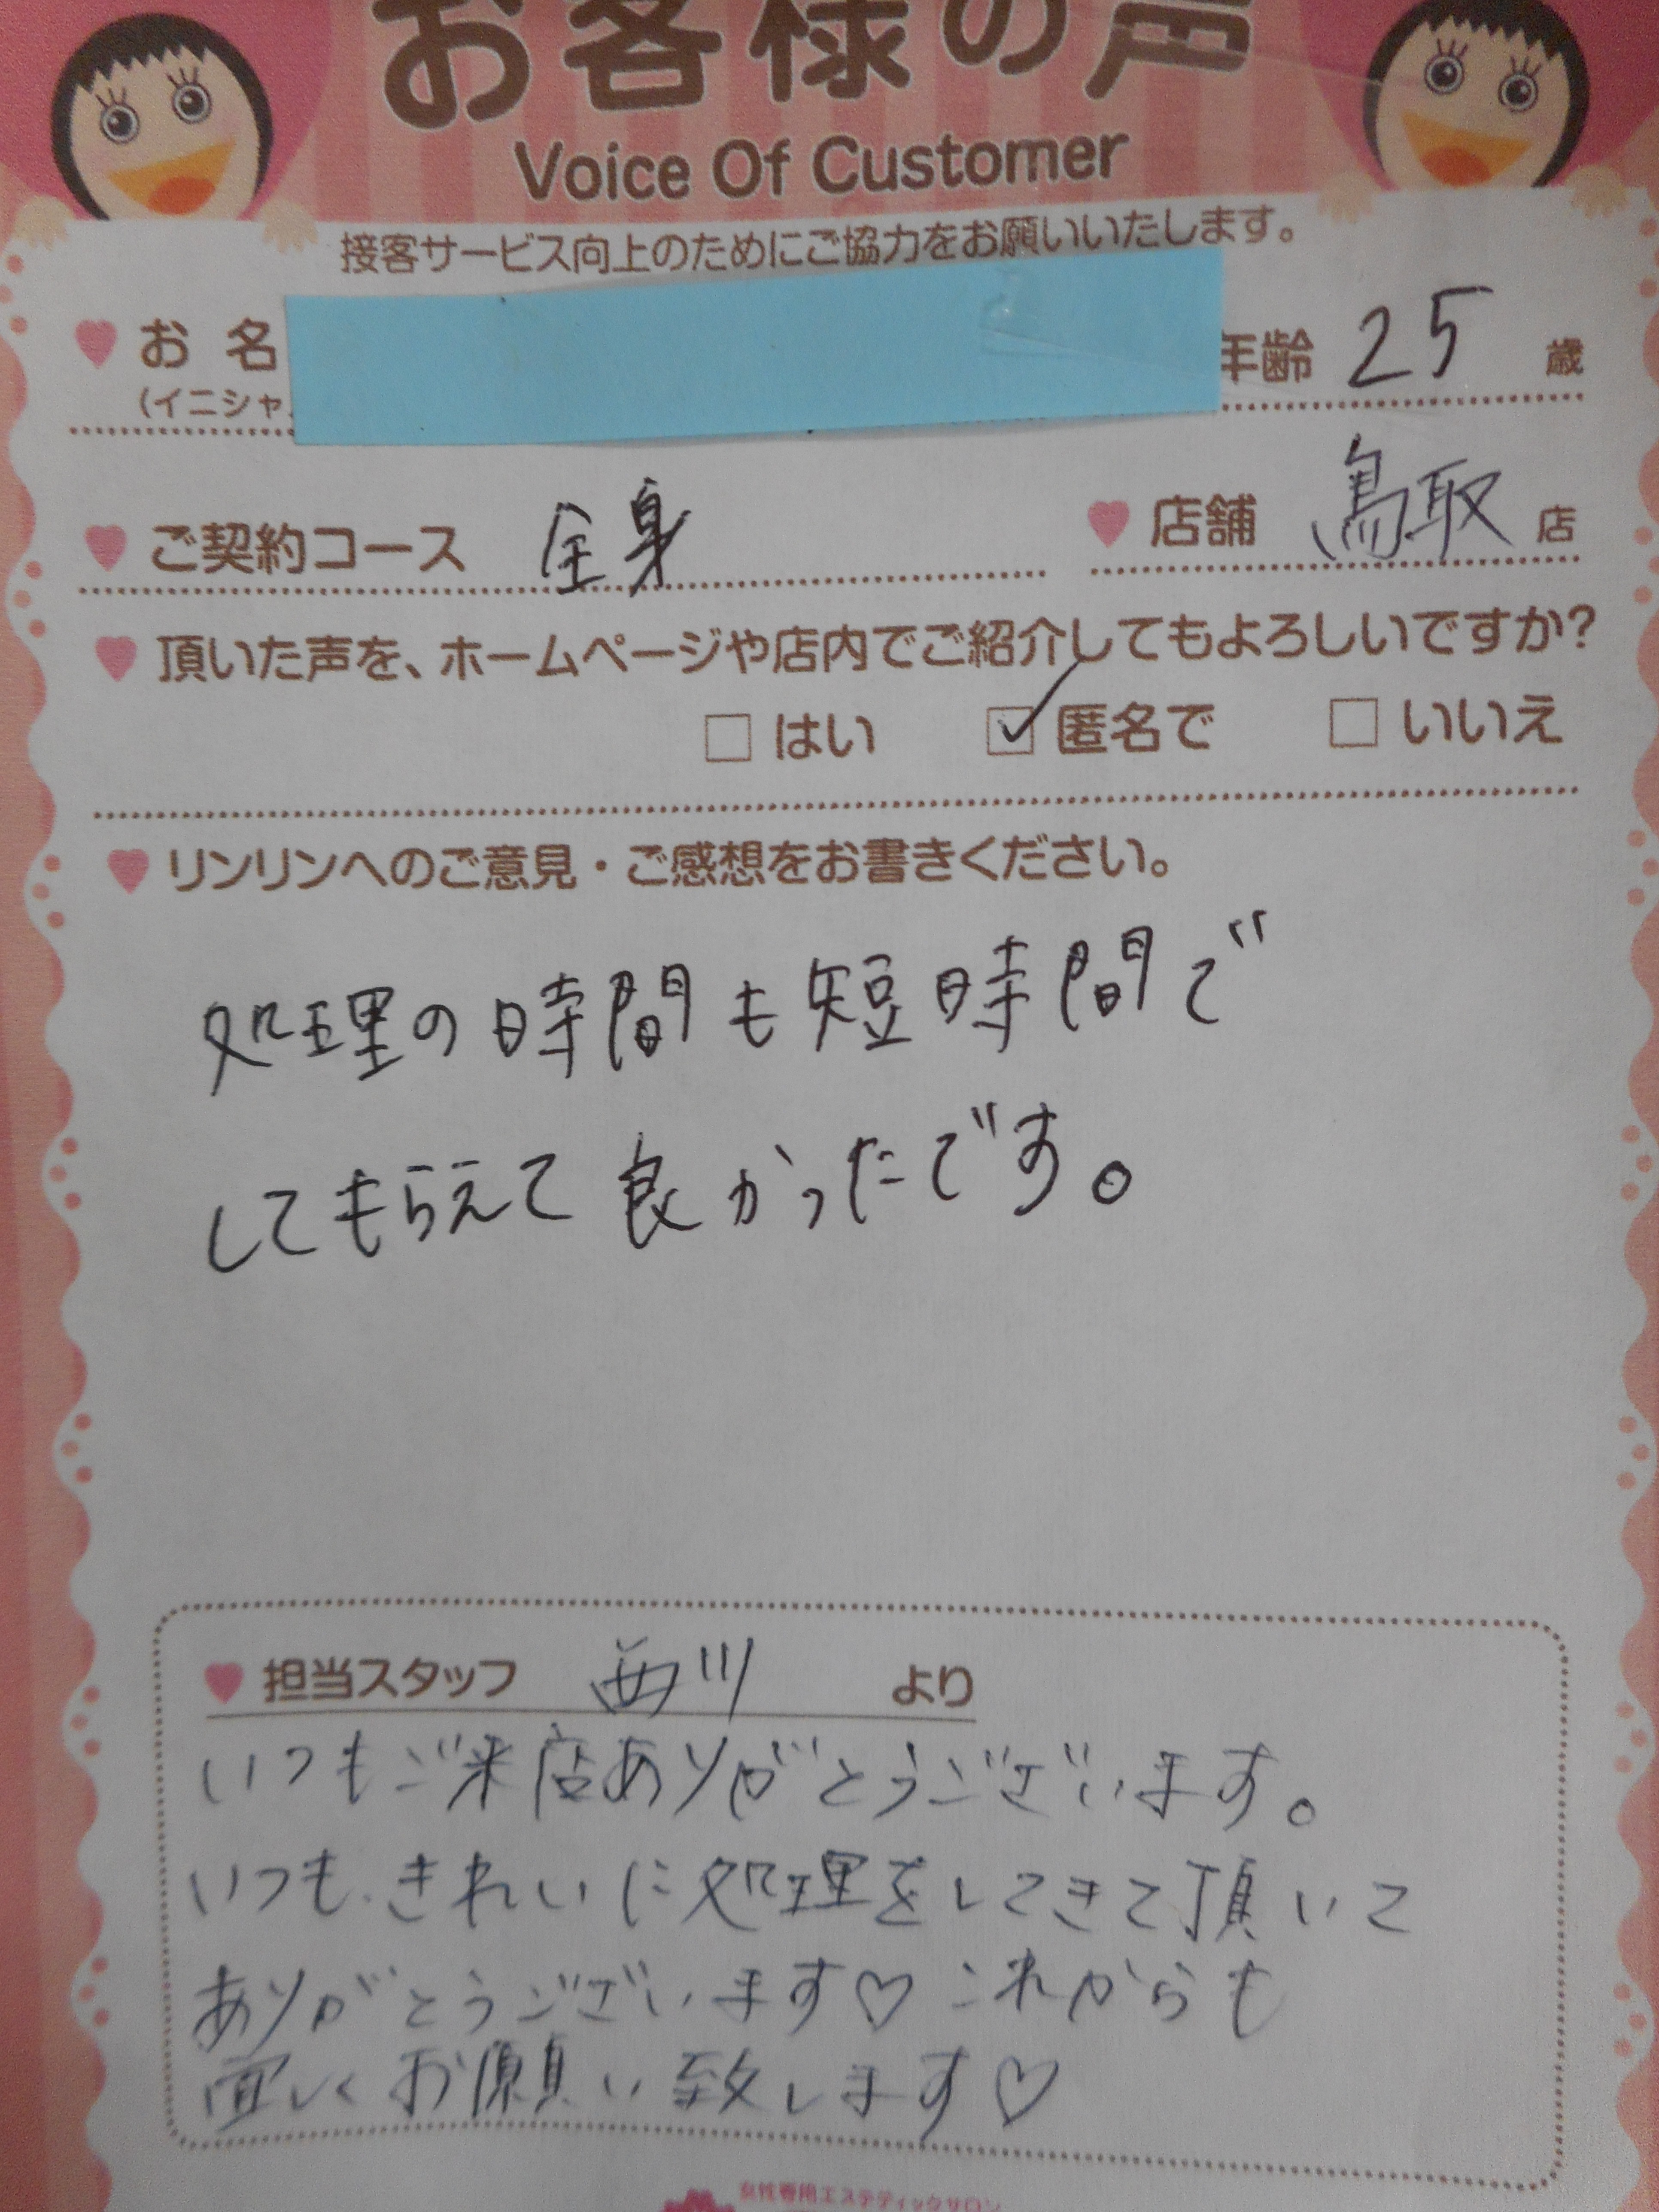 お客様の声
Voice Of Customer
接客サービス向上のためにご協力をお願いいたします。
お名 年齢 25 歳
(イニシャ
ご契約コース 全身 店舗 鳥取 店
頂いた声を、ホームページや店内でご紹介してもよろしいですか?
□ はい ☑ 匿名で □ いいえ
リンリンへのご意見・ご感想をお書きください。
処理の時間も短時間で
してもらえて良かったです。
担当スタッフ 西川 より
いつもご来店ありがとうございます。
いつもきれいに処理をしてきて頂いて
ありがとうございます♡これからも
宜しくお願い致します♡
女性専用エステティックサロン